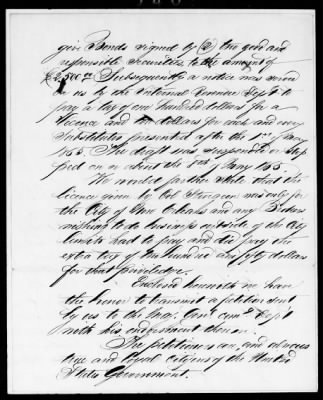 give Bonds signed by (2) two good and
responsible Securities, to the amount of
$2,500.00 Subsequently a notice was served
on us by the Internal Revenue Dept to
pay a tax of one hundred dollars for a
licence and ten dollars for each and every
Substitute presented after the 1st of Jany
1865. The draft was suspended or stop
ped on or about the Jany 1865.
We would further state that the
licence given by Col was only for
the City of New Orleans and any Brokers
wishing to do business outside of the City
limits had to pay and did pay the
extra tax of One hundred and fifty dollars
for that priviledge.
Enclosed herewith we have
the honor to transmit a petition sent
by us to the Genl comg Dept
with his endorsement thereon.
The petitioners are, and always
were good loyal citizens of the United
States Government.